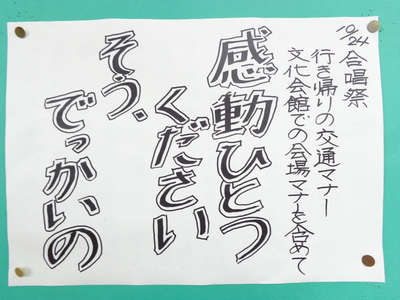 10/24 合唱祭
行き帰りの交通マナー
文化会館での会場マナを含めて
感動ひとつ
ください
そう、
でっかいの